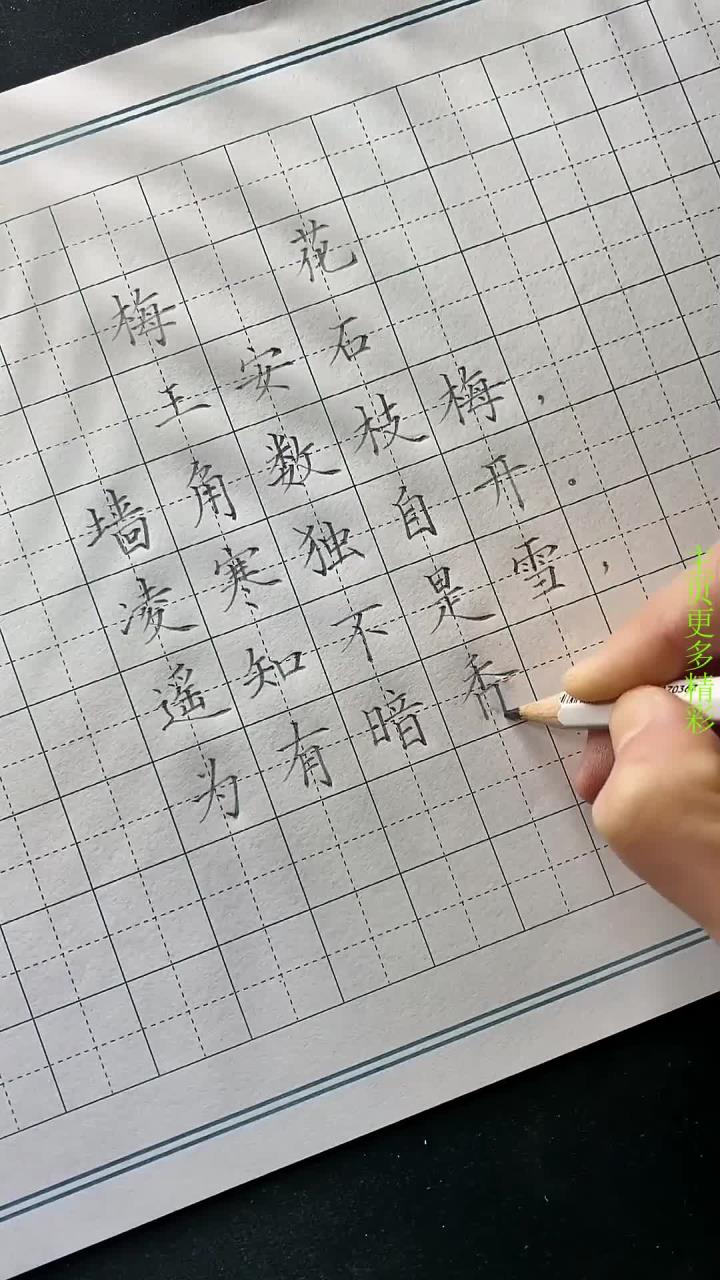 梅花
王安石
墙角数枝梅，
凌寒独自开。
遥知不是雪，
为有暗香
主页更多精彩